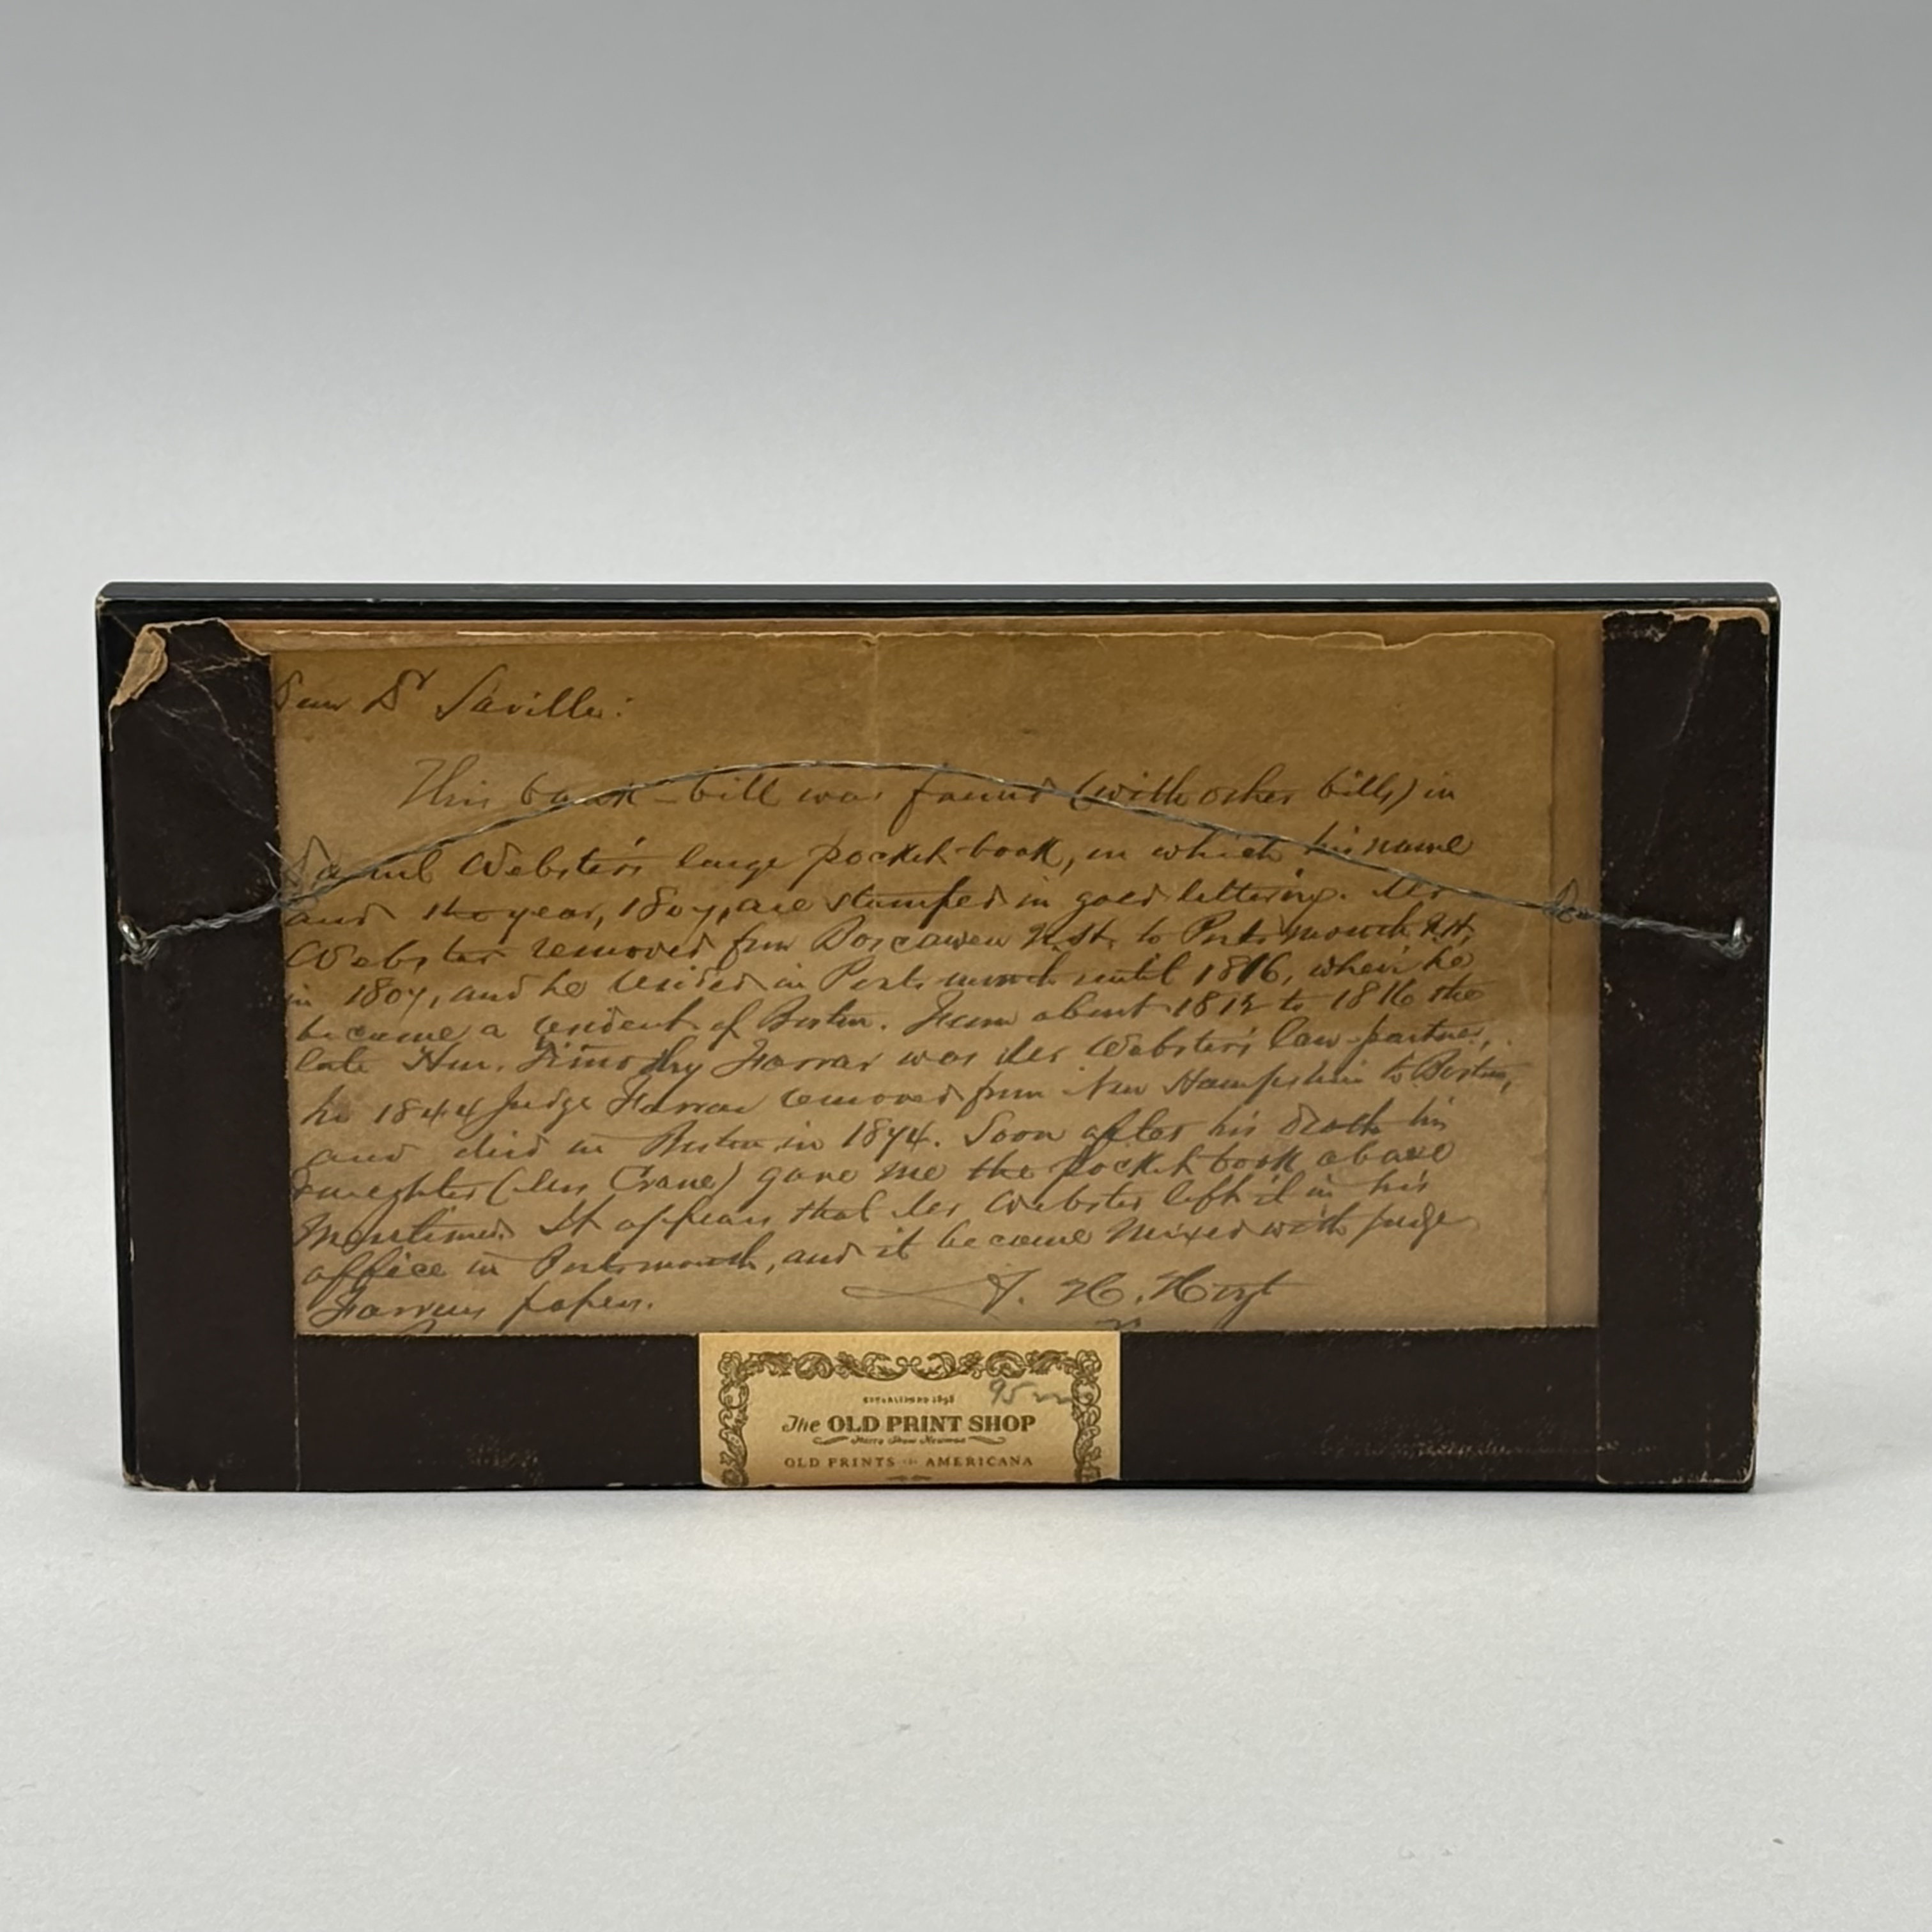 Dear Dr Saville:
This bank-bill was found (with other bills) in
Daniel Webster's large pocket-book, in which his name
and the year, 1807, are stamped in gold lettering. Mr
Webster removed from Boscawen N.H. to Portsmouth N.H.
in 1807, and he resided in Portsmouth until 1816, when he
became a resident of Boston. From about 1812 to 1816 the
late Hon. Timothy Farrar was Mr Webster's law-partner,
In 1844 Judge Farrar removed from New Hampshire to Boston,
and died in Boston in 1874. Soon after his death his
daughter (Mrs Crane) gave me the pocket book above
mentioned. It appears that Mr Webster left it in his
office in Portsmouth, and it became mixed with Judge
Farrar's papers.
A. H. Hoyt
95
ESTABLISHED 1898
The OLD PRINT SHOP
Harry Shaw Newman
OLD PRINTS AMERICANA